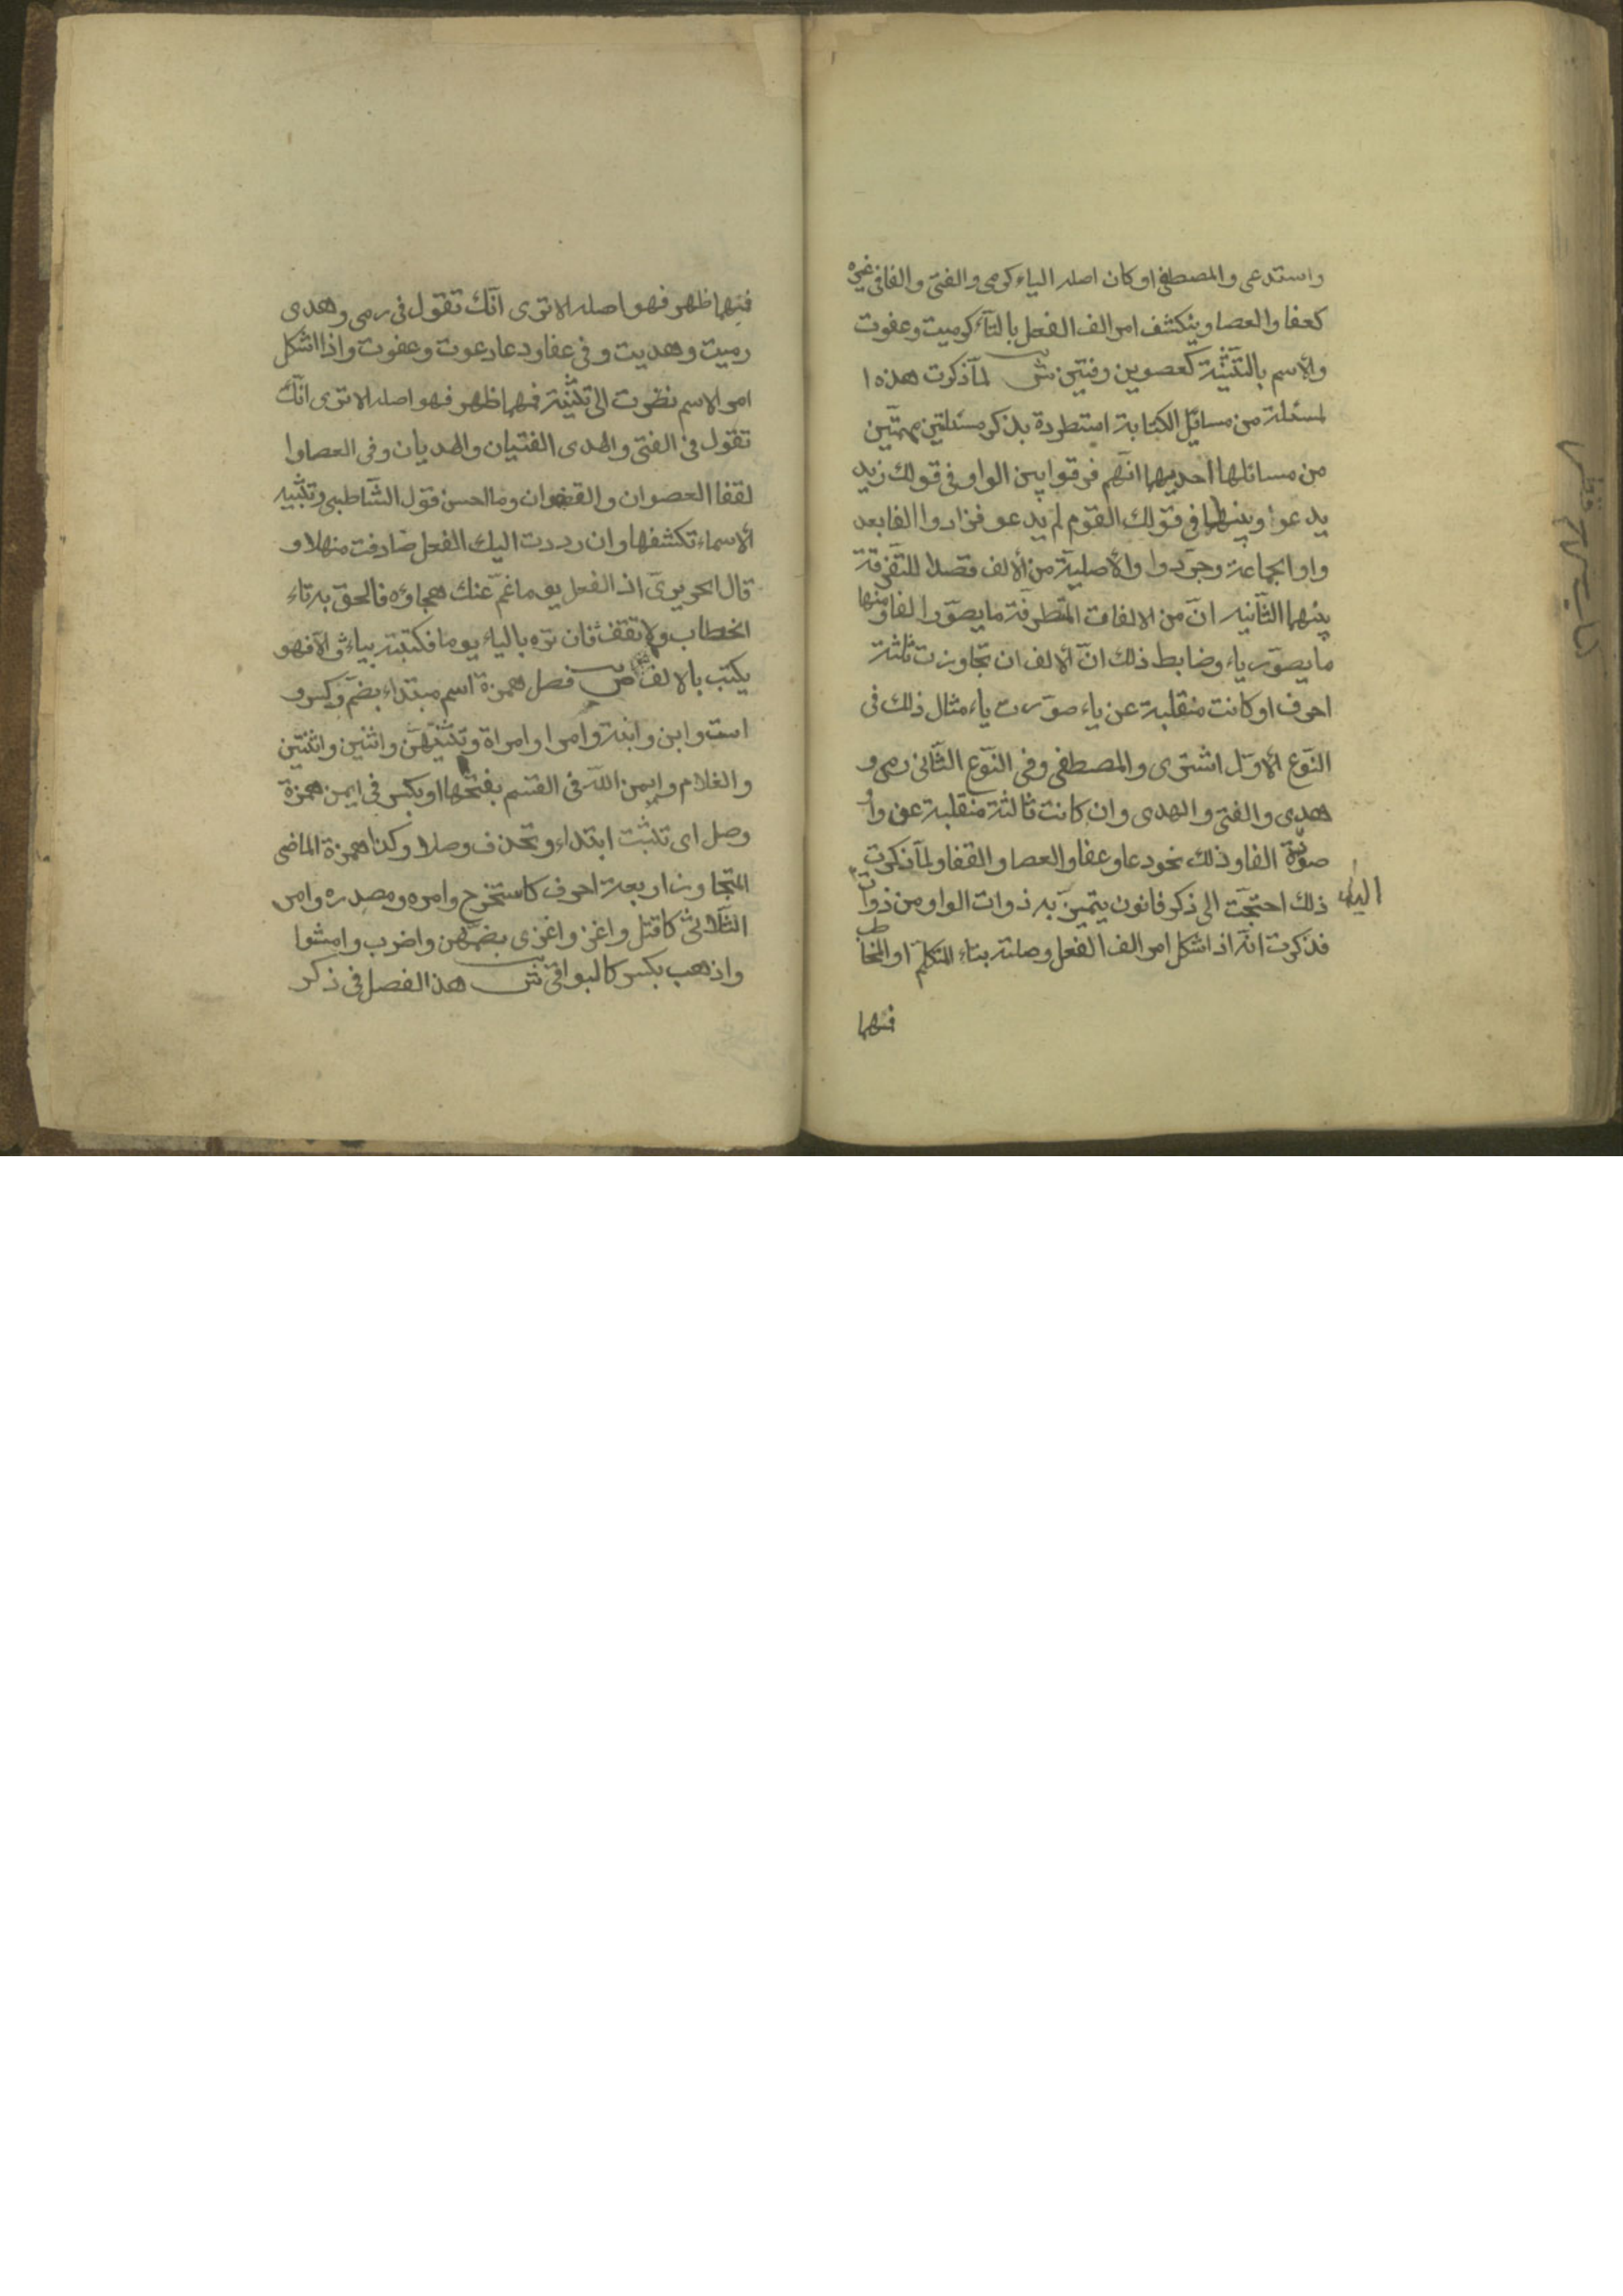 واستدعى والمصطفى او كان اصله الياء كرمى والفتى والفا فى غيره
كعفا والعصا وينكشف امر الف الفعل بالتآء كرميت وعفوت
والاسم بالتثنية كعصوين وفتيين ش لمآ ذكرت هذه ا
لمسئلة من مسائل الكتابة استطردة بذكر مسئلتين مهمتين
من مسائلها احديهما انهم فرقوا بين الواو فى قولك زيد
يدعوا وبينها فى قولك القوم لم يدعو فزادوا الفا بعد
واو الجماعة وجردوا والأصلية من ألالف قصدا للتفرقة
بينهما الثانيه ان من الالفات المتطرفة ما يصور الفا ومنها
ما يصور ياء وضابط ذلك ان ألالف ان تجاوزت ثلثة
احرف او كانت منقلبة عن ياء صورت ياء مثال ذلك فى
النوع ألاول اشترى والمصطفى وفى النوع الثانى رمى و
هدى والفتى والهدى وان كانت ثالثة منقلبة عن واو
صورة الفا وذلك نحو دعا وعفا والعصا والقفا ولمآ ذكرت
ذلك احتجت الى ذكر قانون يتميز به ذوات الواو من ذوات
الياء
فذكرت انه اذ اشكل امر الف الفعل وصلته بتاء المتكلم او المخاطب
فمهما
فمهما ظهر فهو اصله الا ترى انك تقول فى رمى وهدى
رميت وهديت وفى عفا ودعا دعوت وعفوت واذا اشكل
امر الاسم نظرت الى تثنية فمهما ظهر فهو اصله الا ترى انك
تقول فى الفتى والهدى الفتيان والهديان وفى العصا وا
لقفا العصوان والقفوان وما احسن قول الشاطبى وتثنيه
ألاسماء تكشفها وان رددت اليك الفعل صادفت منهلا و
قال الحريرى اذ الفعل يوما غم عنك هجاؤه فالحق به تاء
الخطاب ولا تقف فان تره بالياء يوما فكتبته بياء والا فهو
يكتب بالالف ص فصل همزة اسم مبتداء بضم وكسر و
است وابن وابنة وامرا وامراة وتثنيتهن واثنين واثنتين
والغلام وايمن الله فى القسم بفتحها او بكسر فى ايمن همزة
وصل اى تثبت ابتداء وتحذف وصلا وكذا همزة الماضى
المتجاوز اربعة احرف كاستخرج وامره ومصدره وامر
الثلاثى كاقتل واغز واغزى بضمهن واضرب وامشوا
واذهب بكسر كالبواقى ش هذا الفصل فى ذكر